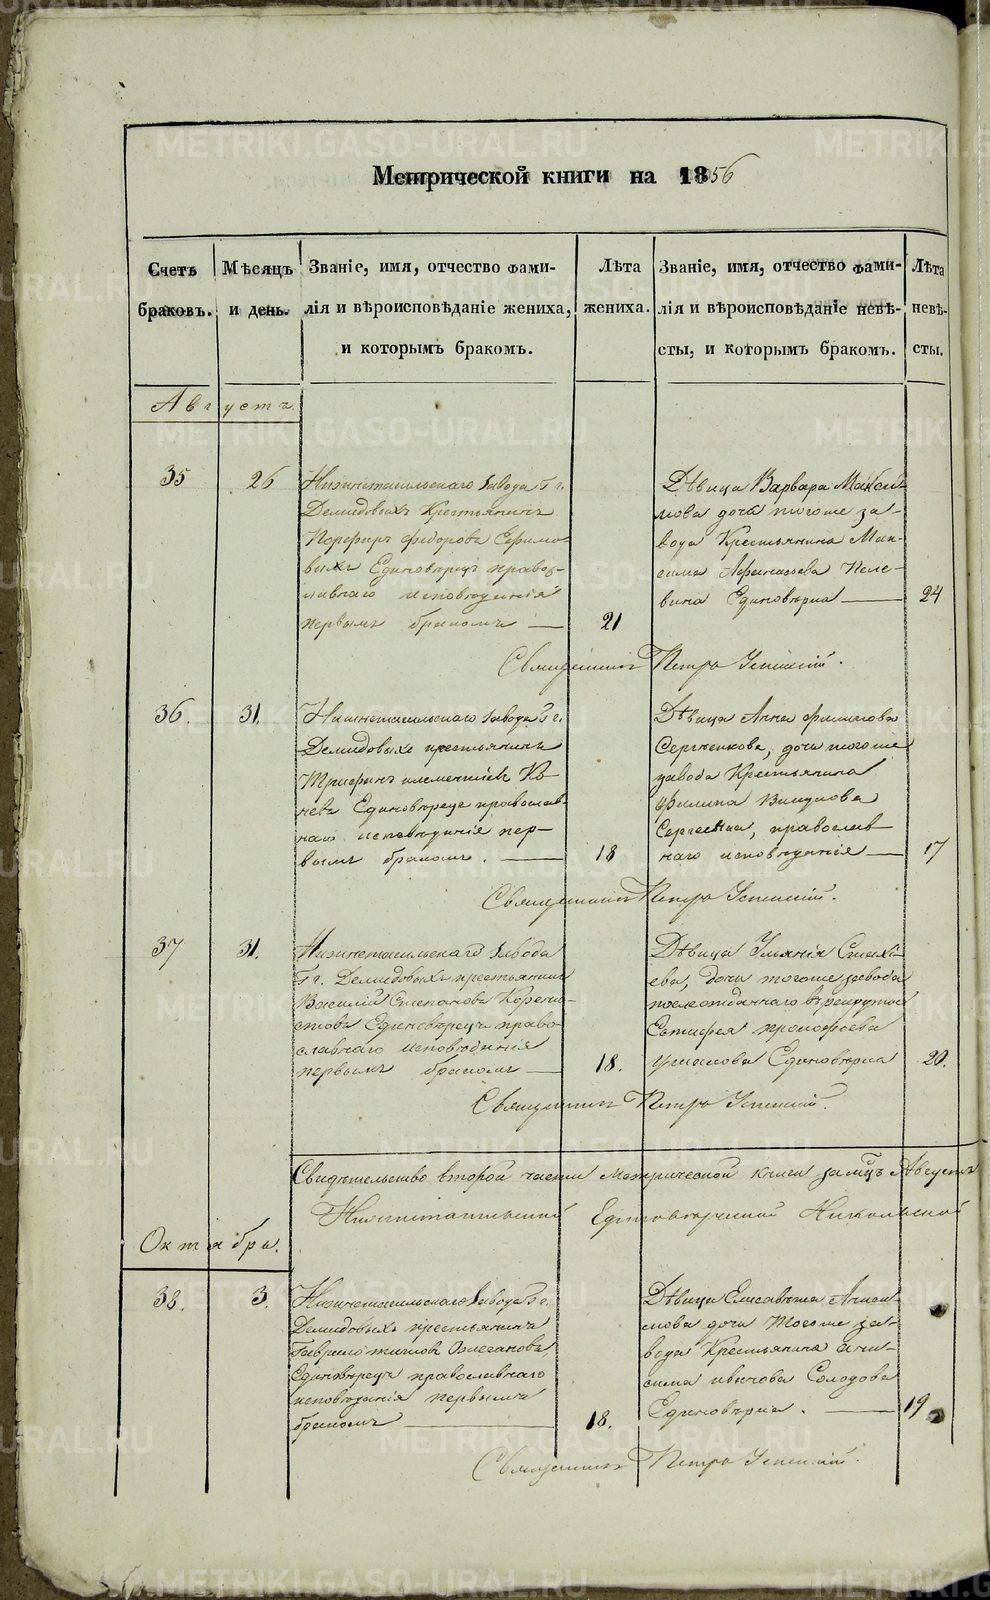 Метрической книги на 1856
Счетъ браковъ.
Мѣсяцъ и день.
Званіе, имя, отчество фами-
лія и вѣроисповѣданіе жениха,
и которымъ бракомъ.
Лѣта
жениха.
Званіе, имя, отчество фами-
лія и вѣроисповѣданіе невѣ-
сты, и которымъ бракомъ.
Лѣта
невѣ-
сты.
Августъ
35 26
Нижнетагильскаго завода Гг.
Демидовыхъ Крестьянинъ
Порфиръ Федоровъ
Единовѣрецъ право-
славнаго исповѣданія
первымъ бракомъ —
21
Дѣвица Варвара Макси-
мова дочь тогоже за-
вода Крестьянина Мак-
сима Афанасьева Пеле-
вина Единовѣрка —
24
Священникъ Петръ Успенскій.
36. 31.
Нижнетагильскаго завода Гг.
Демидовыхъ крестьянинъ
Трифонъ Клементьевъ Ко-
невъ Единовѣрецъ православ-
наго исповѣданія пер-
вымъ бракомъ. —
18
Дѣвица Анна Филипова
дочь тогоже
завода Крестьянина
Филипа Викулова
православ-
наго исповѣданія —
17
Священникъ Петръ Успенскій.
37 31.
Нижнетагильскаго завода
Гг. Демидовыхъ крестьянинъ
Василій Степановъ
Единовѣрецъ право-
славнаго исповѣданія
первымъ бракомъ —
18.
Дѣвица
дочь тогоже завода
Евтифея Прокофьева
Ушакова Единовѣрка
20.
Священникъ Петръ Успенскій.
Свидѣтельство второй части метрической книги за мѣсяцъ Августъ
Нижнетагильской Единовѣрческой Никольской
Октябрь.
38. 3.
Нижнетагильскаго завода Гг.
Демидовыхъ крестьянинъ
Гаврило Титовъ
Единовѣрецъ православнаго
исповѣданія первымъ
бракомъ —
18.
Дѣвица Елисавета Аниси-
мова дочь тогоже за-
вода Крестьянина Ани-
сима Иванова Солодова
Единовѣрка. —
19
Священникъ Петръ Успенскій.
METRIKI.GASO-URAL.RU